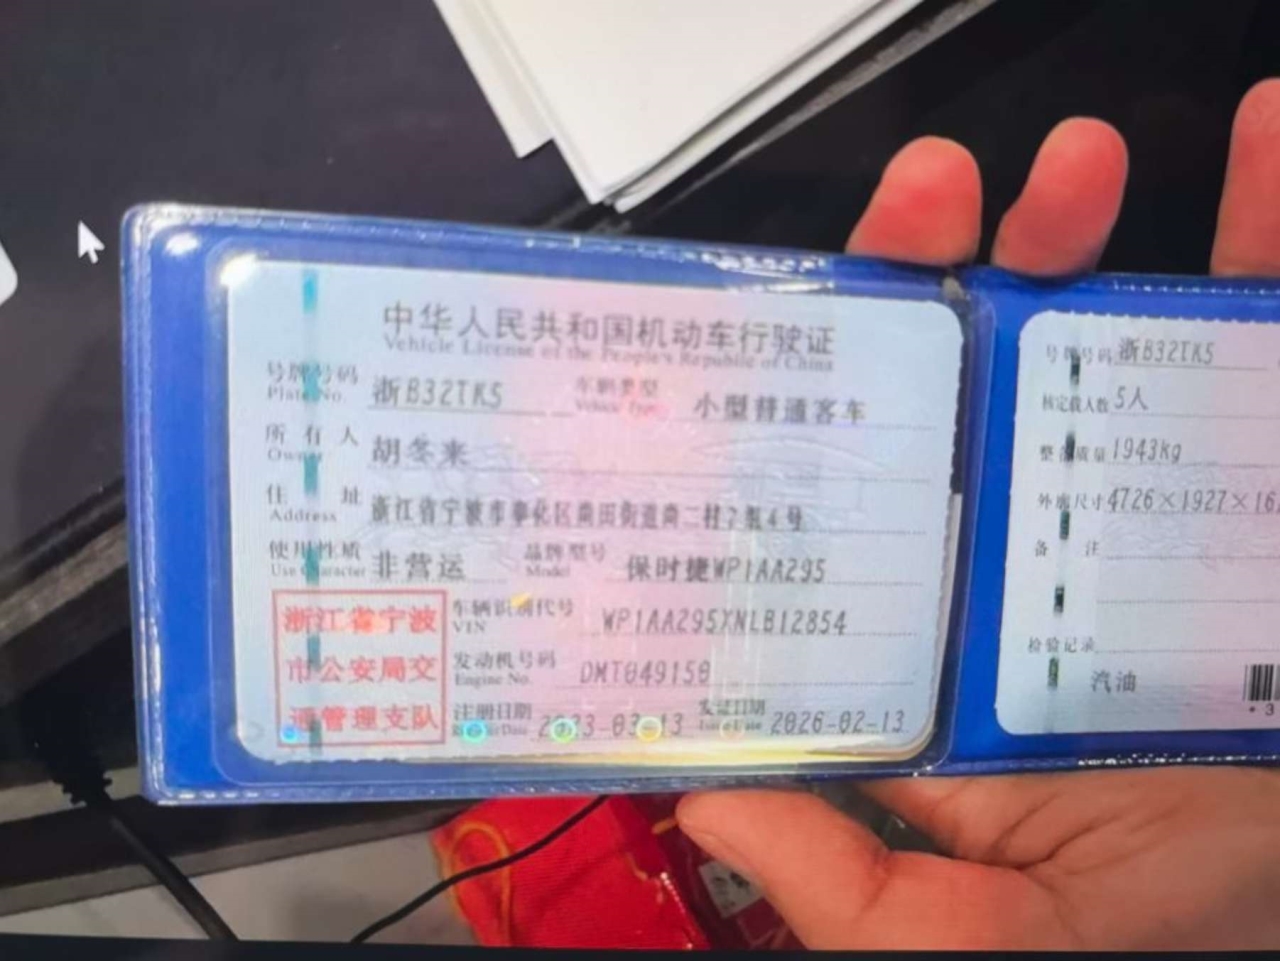 中华人民共和国机动车行驶证
Vehicle License of the People's Republic of China
号牌号码 浙B32TK5 车辆类型 小型普通客车
Plate No. Vehicle Type
所有人 胡冬来
Owner
住址 浙江省宁波市奉化区南田街道南二村2组4号
Address
使用性质 非营运 品牌型号 保时捷WP1AA295
Use Character Model
浙江省宁波 车辆识别代号 WP1AA295XNLB12854
VIN
市公安局交 发动机号码 DMT049150
Engine No.
通管理支队 注册日期 2023-03-13 发证日期 2026-02-13
Register Date Issue Date
号牌号码 浙B32TK5
核定载人数 5人
整备质量 1943kg
外廓尺寸 4726×1927×16
备注
检验记录
汽油
*3